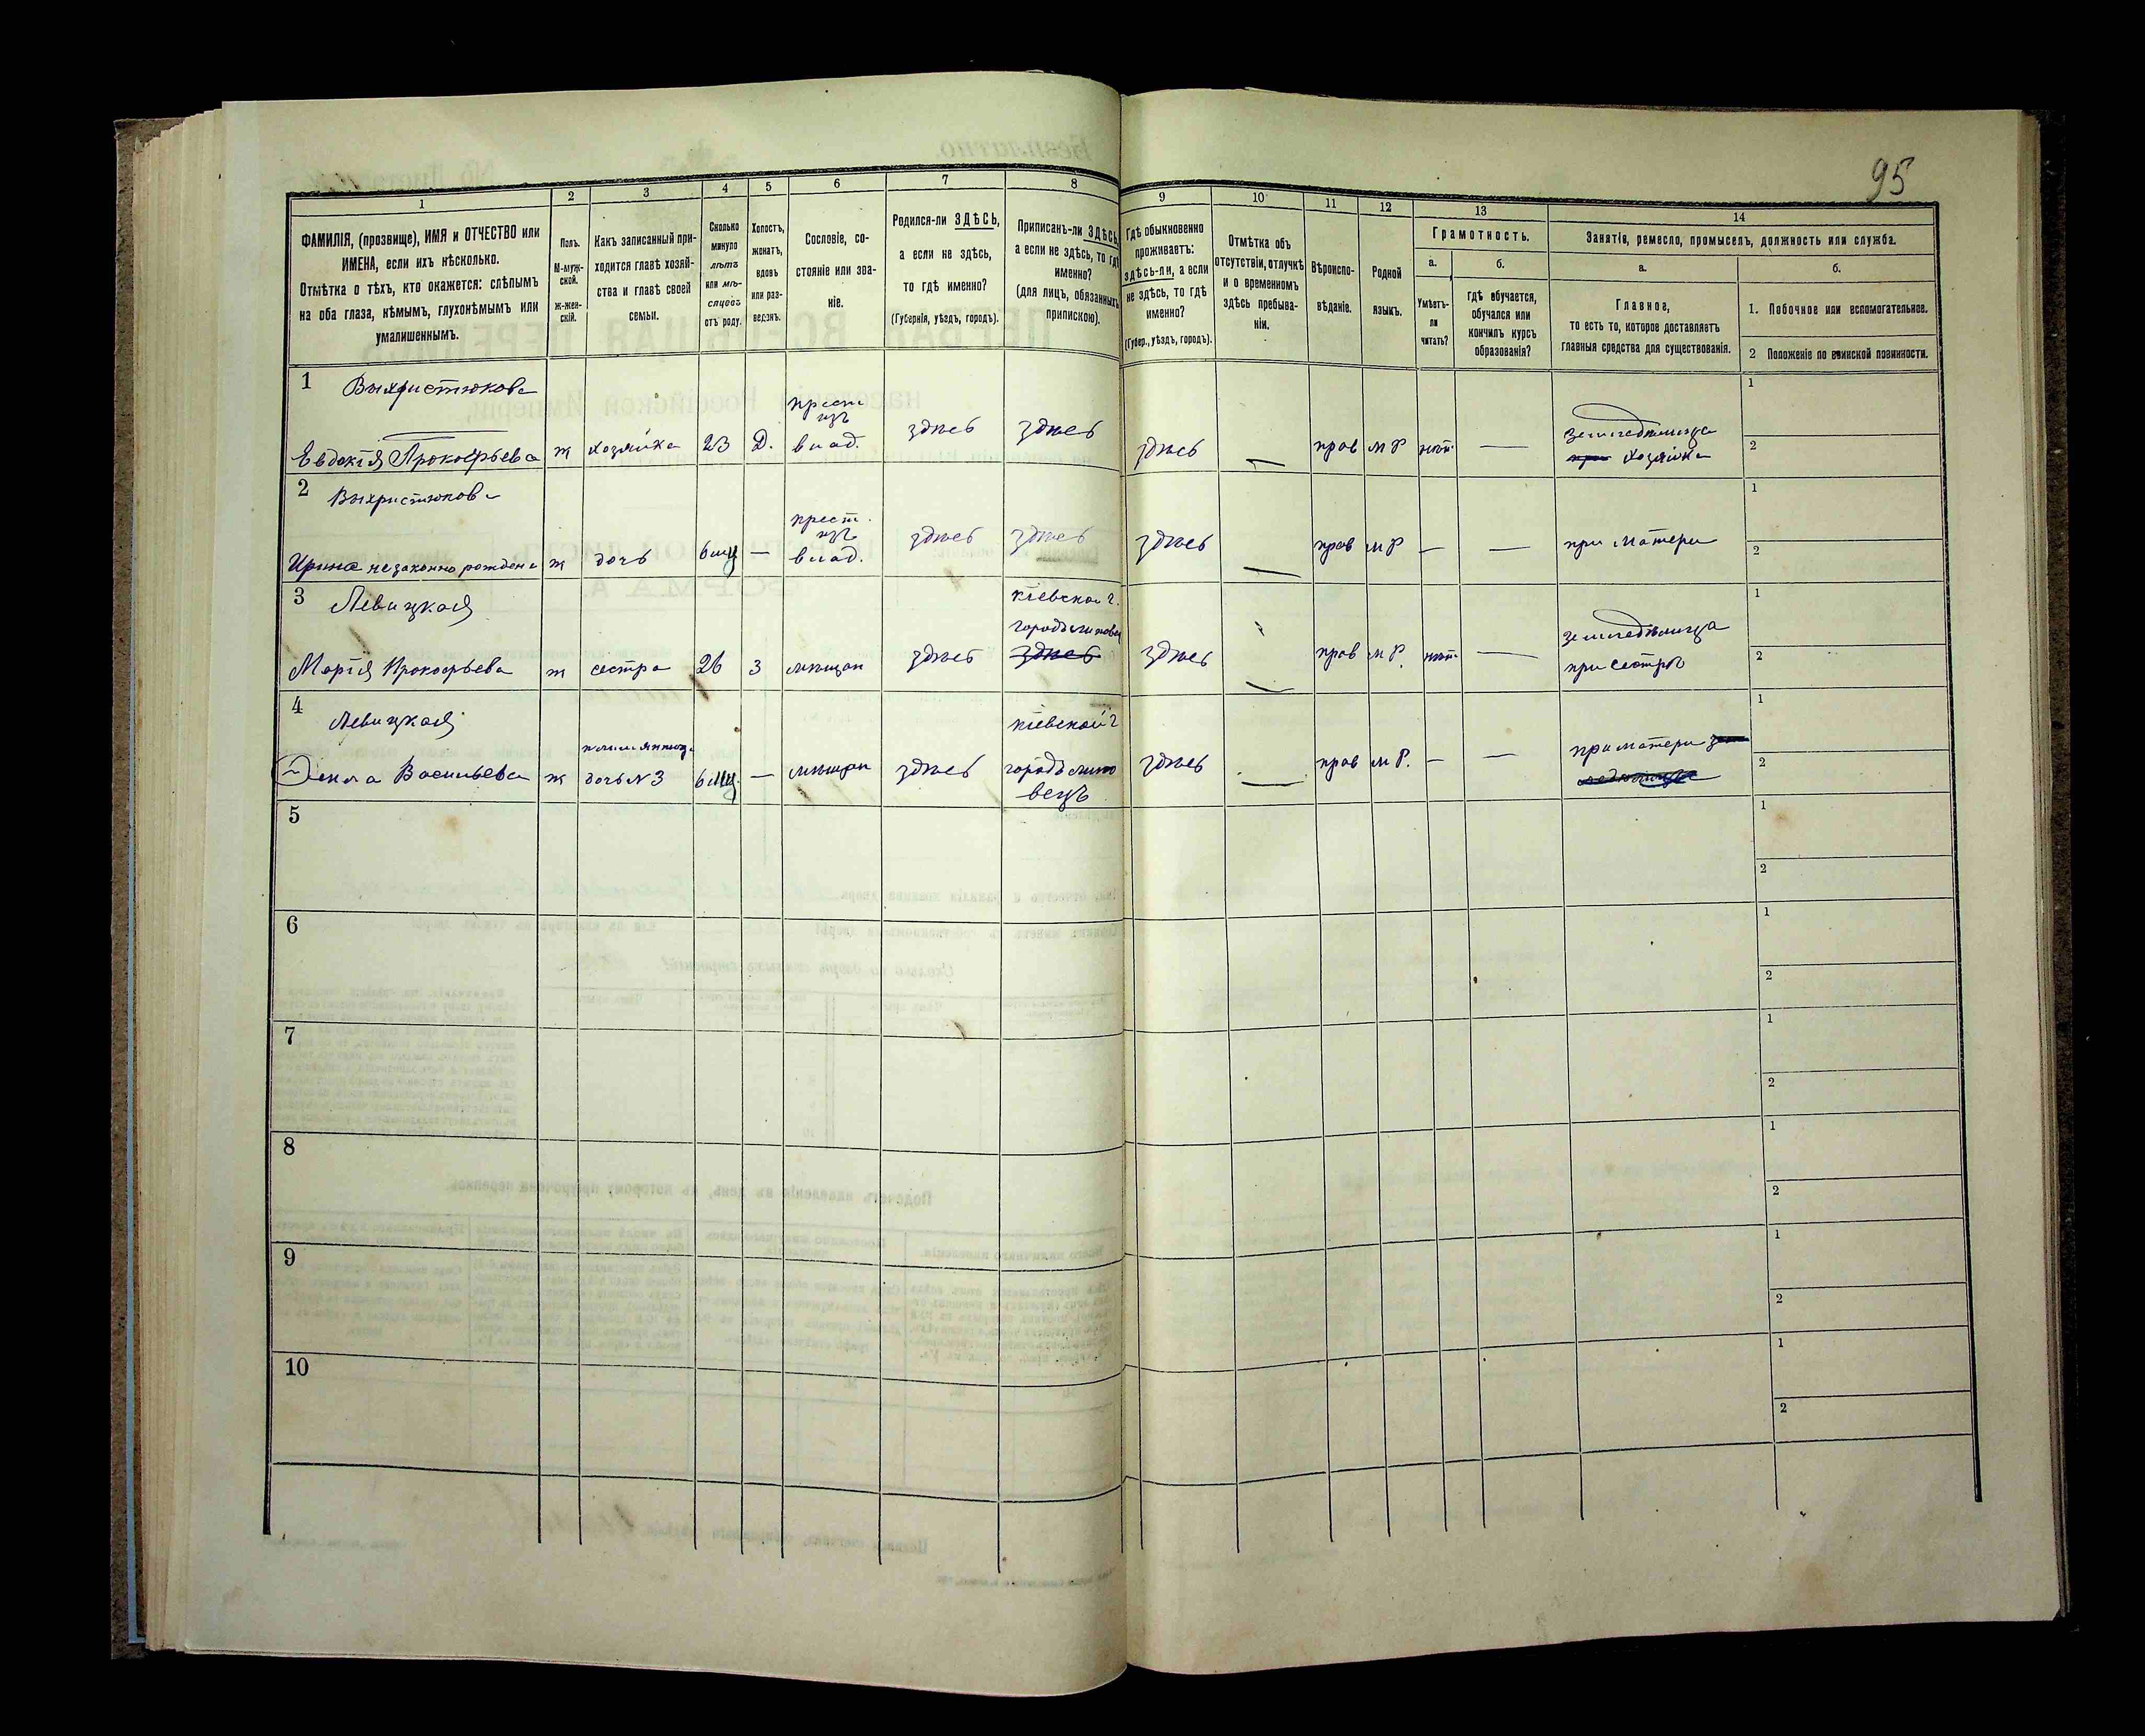 95
1
2
3
4
5
6
7
8
9
10
11
12
13
14
ФАМИЛІЯ, (прозвище), ИМЯ и ОТЧЕСТВО или
ИМЕНА, если ихъ нѣсколько.
Отмѣтка о тѣхъ, кто окажется: слѣпымъ
на оба глаза, нѣмымъ, глухонѣмымъ или
умалишеннымъ.
Полъ.
М-муж-
ской.
Ж-жен-
скій.
Какъ записанный при-
ходится главѣ хозяй-
ства и главѣ своей
семьи.
Сколько
минуло
лѣтъ
или мѣ-
сяцевъ
отъ роду.
Холостъ,
женатъ,
вдовъ
или раз-
веденъ.
Сословіе, со-
стояніе или зва-
ніе.
Родился-ли ЗДѢСЬ,
а если не здѣсь,
то гдѣ именно?
(Губернія, уѣздъ, городъ).
Приписанъ-ли ЗДѢСЬ,
а если не здѣсь, то гдѣ
именно?
(для лицъ, обязанныхъ
припискою).
Гдѣ обыкновенно
проживаетъ:
здѣсь-ли, а если
не здѣсь, то гдѣ
именно?
(Губер., уѣздъ, городъ).
Отмѣтка объ
отсутствіи, отлучкѣ
и о временномъ
здѣсь пребыва-
ніи.
Вѣроиспо-
вѣданіе.
Родной
языкъ.
Грамотность.
а.
Умѣетъ-
ли
читать?
б.
гдѣ обучается,
обучался или
кончилъ курсъ
образованія?
Занятія, ремесло, промыселъ, должность или служба.
а.
Главное,
то есть то, которое доставляетъ
главныя средства для существованія.
б.
1. Побочное или вспомогательное.
2 Положеніе по воинской повинности.
1 Выхристюкова
Евдокія Прокофьева
ж
хозяйка
23
Д.
крест
изъ
влад.
здѣсь
здѣсь
здѣсь
—
прав
м Р
нѣт
—
земледѣлица
хозяйка
1
2
2 Выхристюкова
Ирина незаконно рождена
ж
дочь
6 мц
—
крест.
изъ
влад.
здѣсь
здѣсь
здѣсь
—
прав
м Р
—
—
при матери
1
2
3 Левицкая
Марія Прокофьева
ж
сестра
26
З
мѣщан
здѣсь
кіевской г.
здѣсь
здѣсь
—
прав
м Р.
нѣт
—
земледѣлица
при сестрѣ
1
2
4 Левицкая
Васильева
ж
племянница
дочь N 3
6 мц
—
мѣщан
здѣсь
кіевской г
здѣсь
—
прав
м Р.
—
—
при матери
1
2
5
1
2
6
1
2
7
1
2
8
1
2
9
1
2
10
1
2